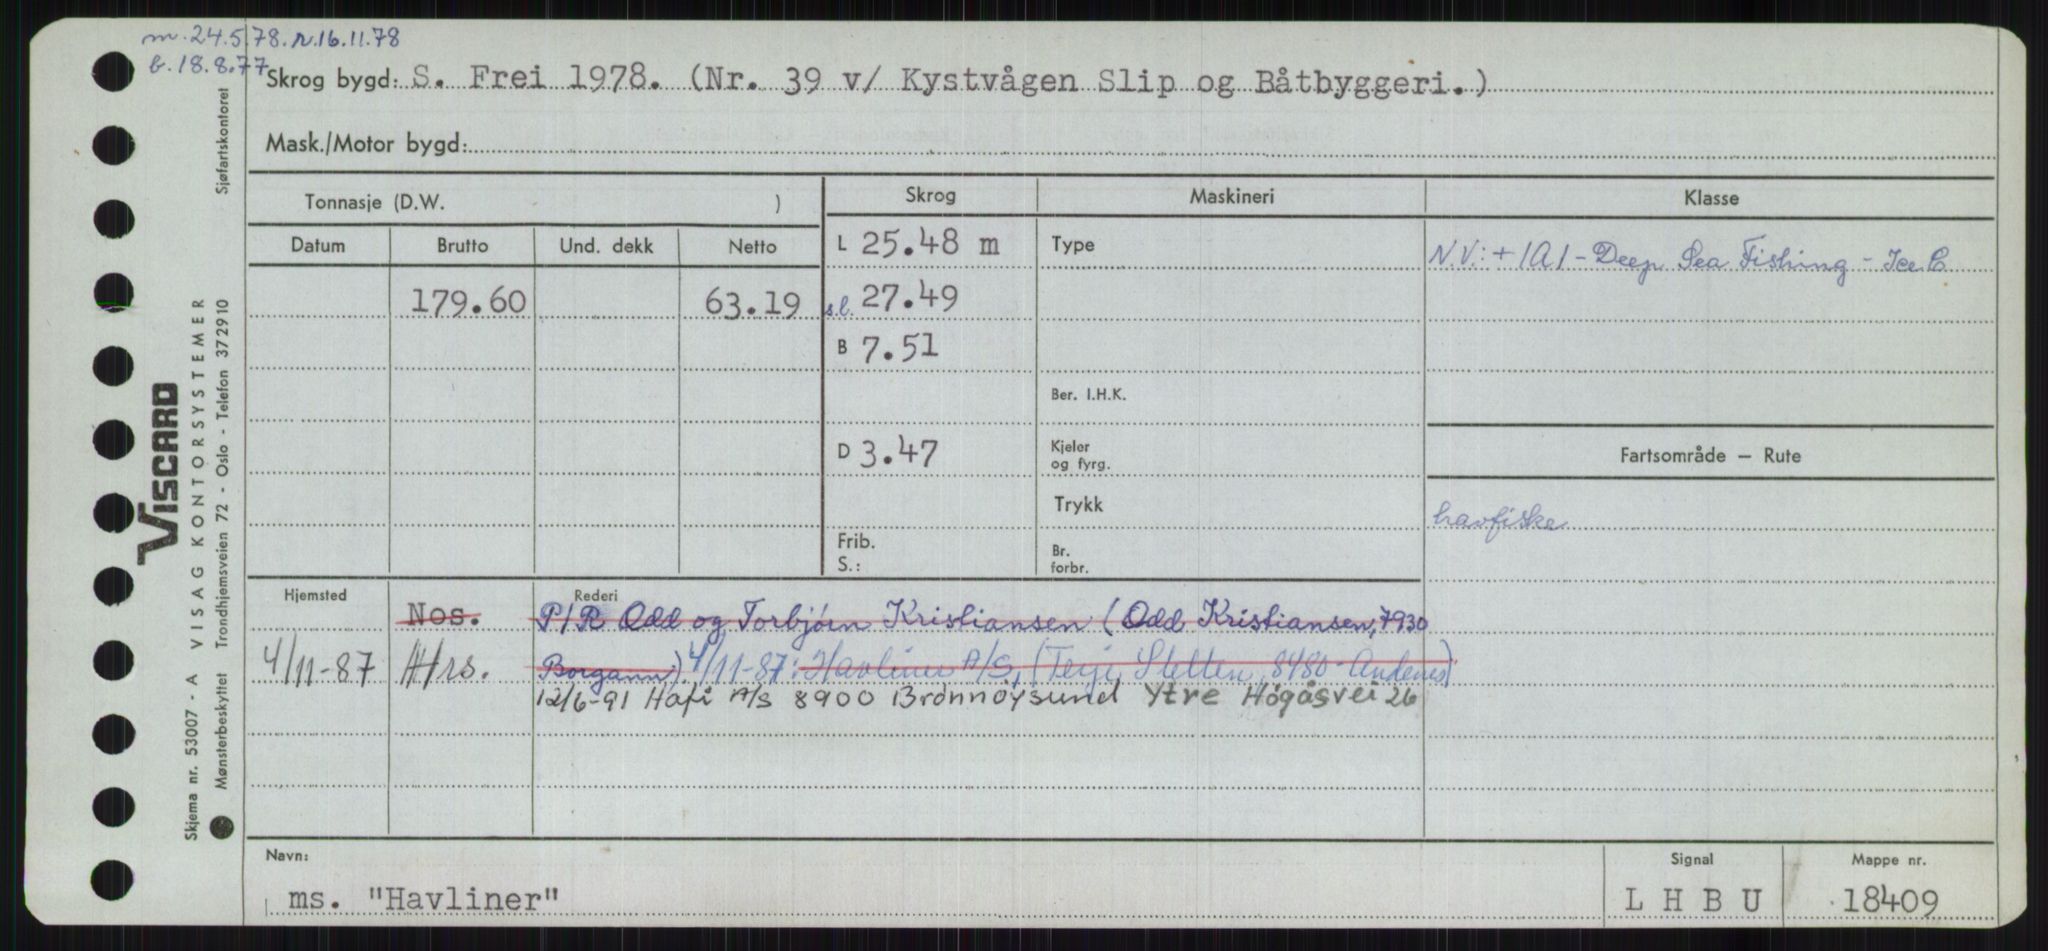 m. 24.5.78. r. 16.11.78
b. 18.8.77
Skrog bygd: S. Frei 1978. (Nr. 39 v/ Kystvågen Slip og Båtbyggeri.)
Mask./Motor bygd:
Tonnasje (D.W. )
Skrog
Maskineri
Klasse
Datum
Brutto
Und. dekk
Netto
L 25.48 m
Type
N.V.: + 1A1 - Deep Sea Fishing - Ice C
179.60
63.19
s.l. 27.49
B 7.51
Ber. I.H.K.
D 3.47
Kjeler
og fyrg.
Fartsområde – Rute
Trykk
havfiske
Frib.
S.:
Br.
forbr.
Hjemsted
Rederi
Nos.
P/R Odd og Torbjørn Kristiansen (Odd Kristiansen, 7930
4/11-87
Hrs.
Borgann) 4/11-87: Havliner A/S, (Terje Sletten, 8480 Andenes)
12/6-91 Hafi A/S 8900 Brønnøysund Ytre Høgåsvei 26
Navn:
ms. "Havliner"
Signal
L H B U
Mappe nr.
18409
Sjøfartskontoret
VISCARD
VISAG KONTORSYSTEMER
Trondhjemsveien 72 - Oslo - Telefon 372910
Skjema nr. 53007 - A
Mønsterbeskyttet